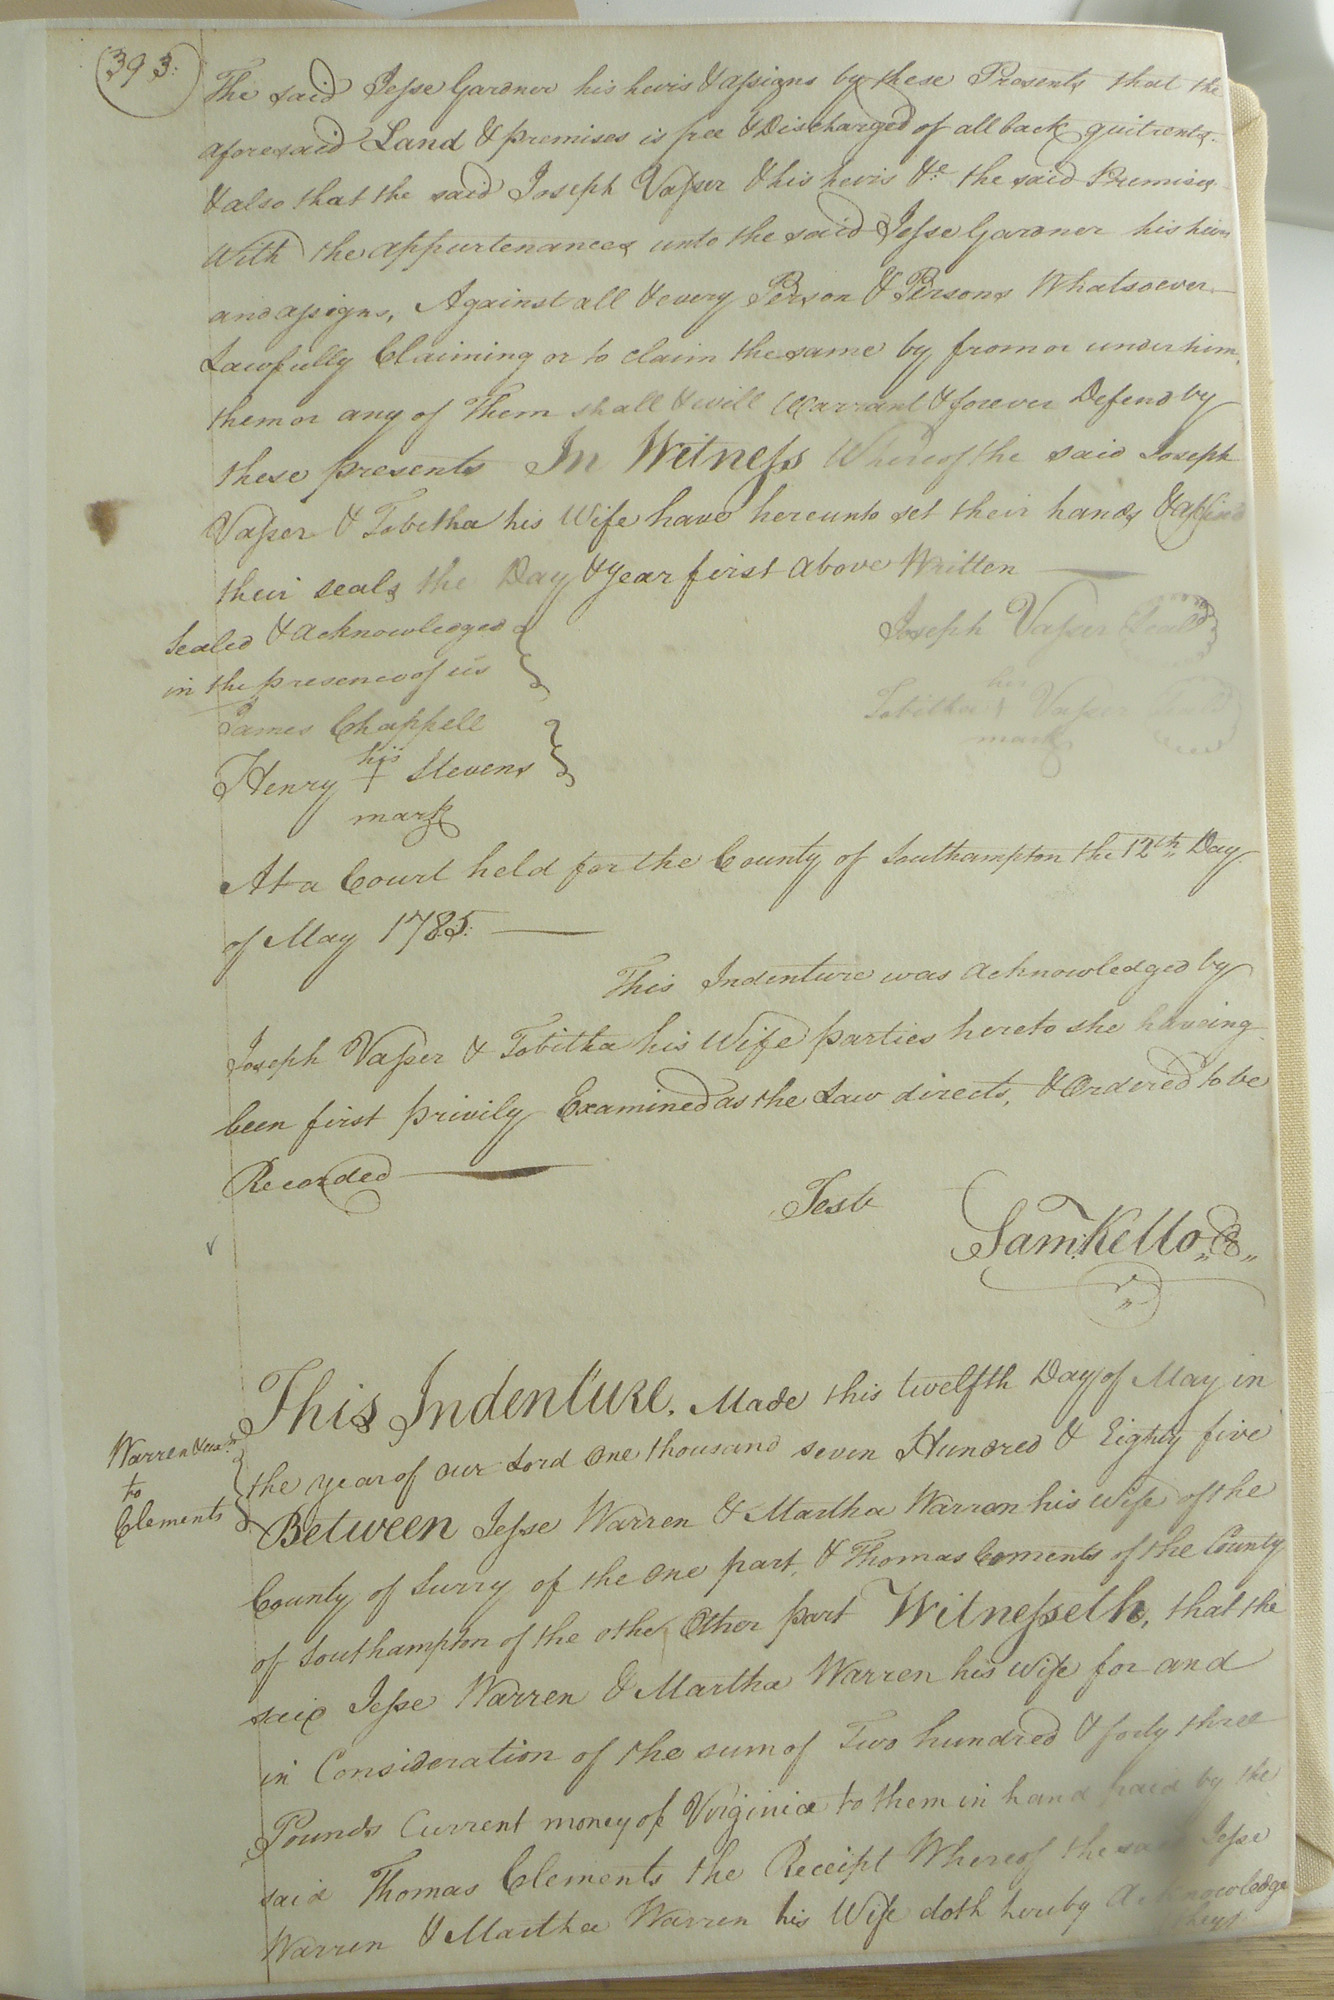 393:
The said Jesse Gardner his heirs & assigns by these Presents that the
aforesaid Land & premises is free & Discharged of all back quitrents.
& also that the said Joseph Vasser & his heirs &c the said Premises
With the appurtenances unto the said Jesse Gardner his heirs
and assigns, Against all & every Person & Persons Whatsoever
Lawfully Claiming or to claim the same by from or under him,
them or any of Them shall & will Warrant & forever Defend by
these presents In Witness Whereof the said Joseph
Vasser & Tobitha his Wife have hereunto set their hands & affix'd
their seals the Day & Year first above Written
Sealed & Acknowledged
in the presence of us
Joseph Vasser Seald
James Chappell
his
Henry + Stevens
mark
her
Tobitha + Vasser Seald
mark
At a Court held for the County of Southampton the 12th Day
of May 1785:
This Indenture was acknowledged by
Joseph Vasser & Tobitha his Wife parties hereto she haveing
been first privily Examined as the Law directs, & Ordered to be
Recorded
Test
Sam: Kello
This Indenture, Made this twelfth Day of May in
Warren & ux
to
Clements
the year of our Lord One thousand seven Hundred & Eighty five
Between Jesse Warren & Martha Warren his Wife of the
County of Surry of the one part, & Thomas Coments of the County
of Southampton of the othe Other part Witnesseth, that the
said Jesse Warren & Martha Warren his wife for and
in Consideration of the sum of Two hundred & forty three
Pounds Current money of Virginia to them in hand paid by the
said Thomas Clements the Receipt Whereof the said Jesse
Warren & Martha Warren his Wife doth hereby Acknowledge